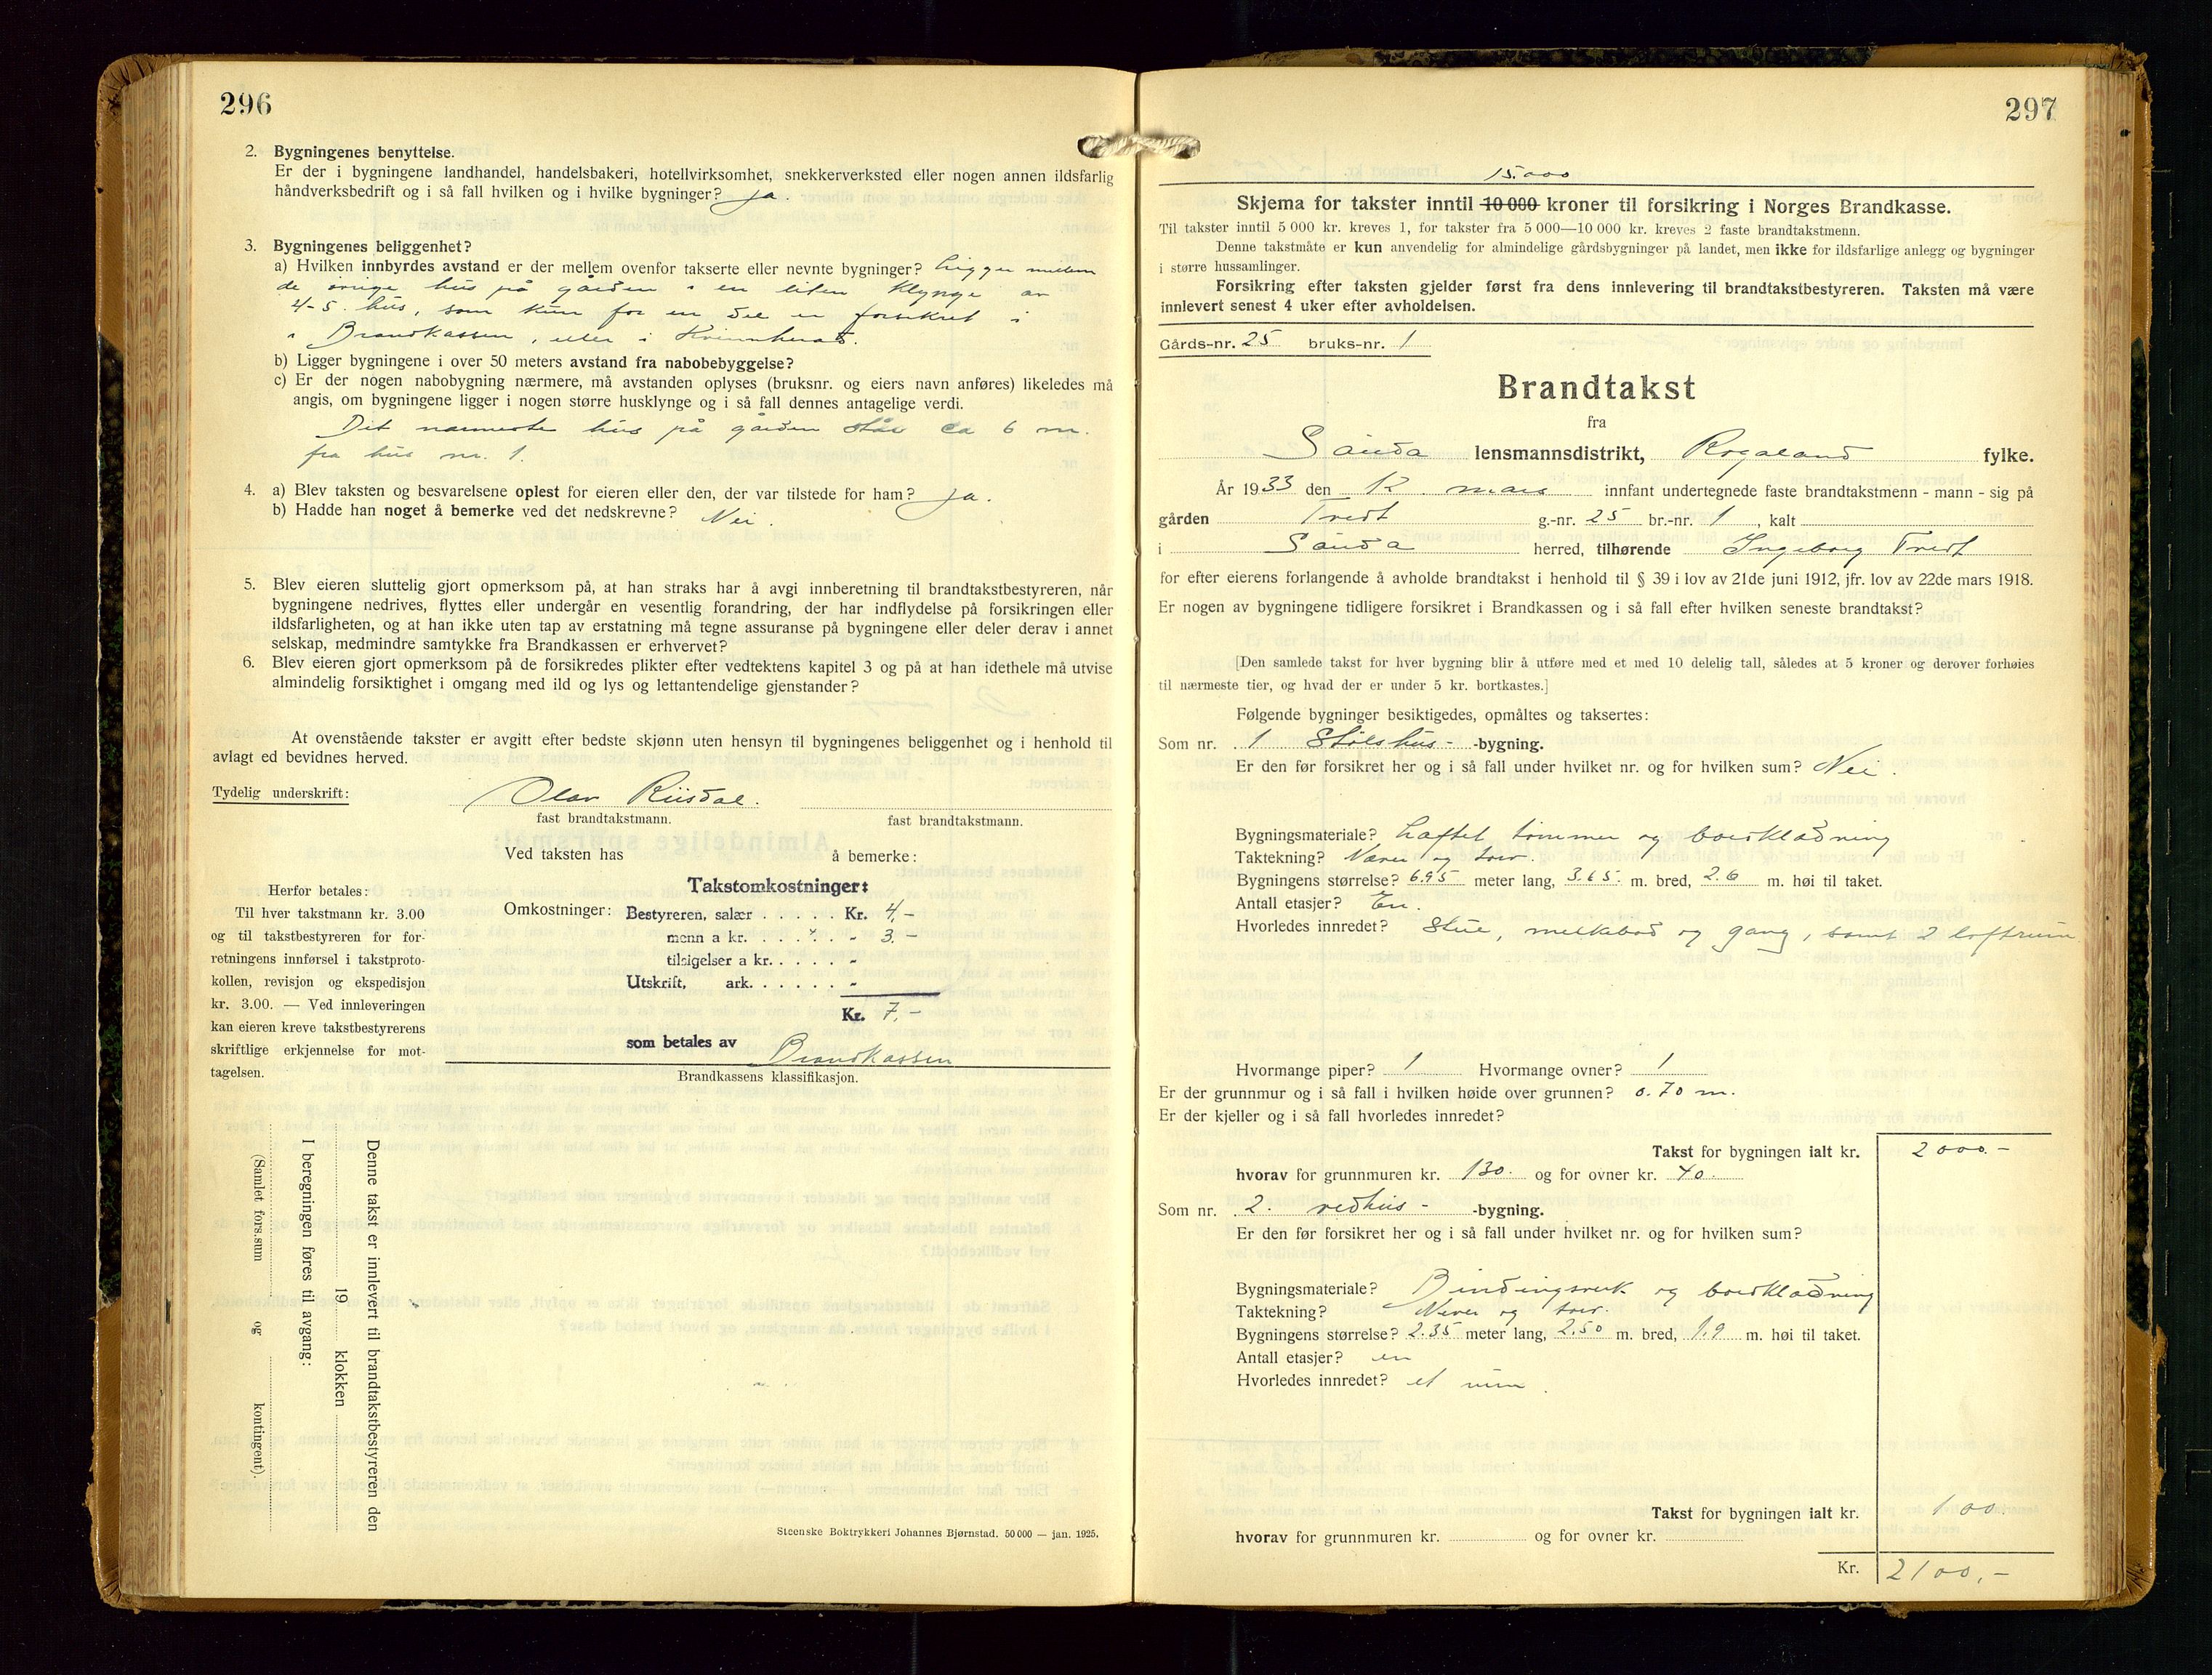 296
2. Bygningenes benyttelse.
Er der i bygningene landhandel, handelsbakeri, hotellvirksomhet, snekkerverksted eller nogen annen ildsfarlig
håndverksbedrift og i så fall hvilken og i hvilke bygninger? ja.
3. Bygningenes beliggenhet?
a) Hvilken innbyrdes avstand er der mellem ovenfor takserte eller nevnte bygninger? Ligger mellem
de øvrige hus på garden i en liten klynge av
4-5 hus, som kun for en del er forsikret i
i Brandkassen, eller i Kvinnherad.
b) Ligger bygningene i over 50 meters avstand fra nabobebyggelse?
c) Er der nogen nabobygning nærmere, må avstanden oplyses (bruksnr. og eiers navn anføres) likeledes må
angis, om bygningene ligger i nogen større husklynge og i så fall dennes antagelige verdi.
Det nærmeste hus på garden står ca 6 m.
fra hus nr. 1.
4. a) Blev taksten og besvarelsene oplest for eieren eller den, der var tilstede for ham? ja.
b) Hadde han noget å bemerke ved det nedskrevne? Nei.
5. Blev eieren sluttelig gjort opmerksom på, at han straks har å avgi innberetning til brandtakstbestyreren, når
bygningene nedrives, flyttes eller undergår en vesentlig forandring, der har indflydelse på forsikringen eller
ildsfarligheten, og at han ikke uten tap av erstatning må tegne assuranse på bygningene eller deler derav i annet
selskap, medmindre samtykke fra Brandkassen er erhvervet?
6. Blev eieren gjort opmerksom på de forsikredes plikter efter vedtektens kapitel 3 og på at han idethele må utvise
almindelig forsiktighet i omgang med ild og lys og lettantendelige gjenstander?
At ovenstående takster er avgitt efter bedste skjønn uten hensyn til bygningenes beliggenhet og i henhold til
avlagt ed bevidnes herved.
Tydelig underskrift: Olav Riisdal.
fast brandtakstmann. fast brandtakstmann.
Ved taksten has å bemerke:
Herfor betales:
Til hver takstmann kr. 3.00
og til takstbestyreren for for-
retningens innførsel i takstproto-
kollen, revisjon og ekspedisjon
kr. 3.00. — Ved innleveringen
kan eieren kreve takstbestyrerens
skriftlige erkjennelse for mot-
tagelsen.
Takstomkostninger:
Omkostninger: Bestyreren, salær . . . . . Kr. 4.-
menn a kr. . . . . . - 3.-
tilsigelser a kr. . . . . -
Utskrift, ark. . . . . . -
Kr. 7.-
som betales av Brandkassen
Brandkassens klassifikasjon.
Denne takst er innlevert til brandtakstbestyreren den
19 klokken
I beregningen føres til avgang:
(Samlet fors.sum og kontingent).
Steenske Boktrykkeri Johannes Bjørnstad. 50 000 — jan. 1925.
297
15.000
Skjema for takster inntil 10 000 kroner til forsikring i Norges Brandkasse.
Til takster inntil 5 000 kr. kreves 1, for takster fra 5 000—10 000 kr. kreves 2 faste brandtakstmenn.
Denne takstmåte er kun anvendelig for almindelige gårdsbygninger på landet, men ikke for ildsfarlige anlegg og bygninger
i større hussamlinger.
Forsikring efter taksten gjelder først fra dens innlevering til brandtakstbestyreren. Taksten må være
innlevert senest 4 uker efter avholdelsen.
Gårds-nr. 25 bruks-nr. 1
Brandtakst
fra
Sauda lensmannsdistrikt, Rogaland fylke.
År 1933 den 12. mars innfant undertegnede faste brandtakstmenn - mann - sig på
gården Tveit g.-nr. 25 br.-nr. 1, kalt
i Sauda herred, tilhørende Ingeborg Tveit
for efter eierens forlangende å avholde brandtakst i henhold til § 39 i lov av 21de juni 1912, jfr. lov av 22de mars 1918.
Er nogen av bygningene tidligere forsikret i Brandkassen og i så fall efter hvilken seneste brandtakst?
[Den samlede takst for hver bygning blir å utføre med et med 10 delelig tall, således at 5 kroner og derover forhøies
til nærmeste tier, og hvad der er under 5 kr. bortkastes.]
Følgende bygninger besiktigedes, opmåltes og taksertes:
Som nr. 1 Stølshus- -bygning.
Er den før forsikret her og i så fall under hvilket nr. og for hvilken sum? Nei.
Bygningsmateriale? Laftet tømmer og bordkledning
Taktekning? Never og torv.
Bygningens størrelse? 6.95 meter lang, 3.65. m. bred, 2.6 m. høi til taket.
Antall etasjer? En.
Hvorledes innredet? Stue, melkebod og gang, samt 2 loftrum
Hvormange piper? 1 Hvormange ovner? 1
Er der grunnmur og i så fall i hvilken høide over grunnen? 0.70 m.
Er der kjeller og i så fall hvorledes innredet?
Takst for bygningen ialt kr. 2000.-
hvorav for grunnmuren kr. 130. og for ovner kr. 40.
Som nr. 2. vedhus- -bygning.
Er den før forsikret her og i så fall under hvilket nr. og for hvilken sum?
Bygningsmateriale? Bindingsverk og bordkledning
Taktekning? Never og torv.
Bygningens størrelse? 2.35 meter lang, 2.50 m. bred, 1.9 m. høi til taket.
Antall etasjer? en
Hvorledes innredet? et rum.
Takst for bygningen ialt kr. 100.
hvorav for grunnmuren kr. og for ovner kr.
Kr. 2100.-